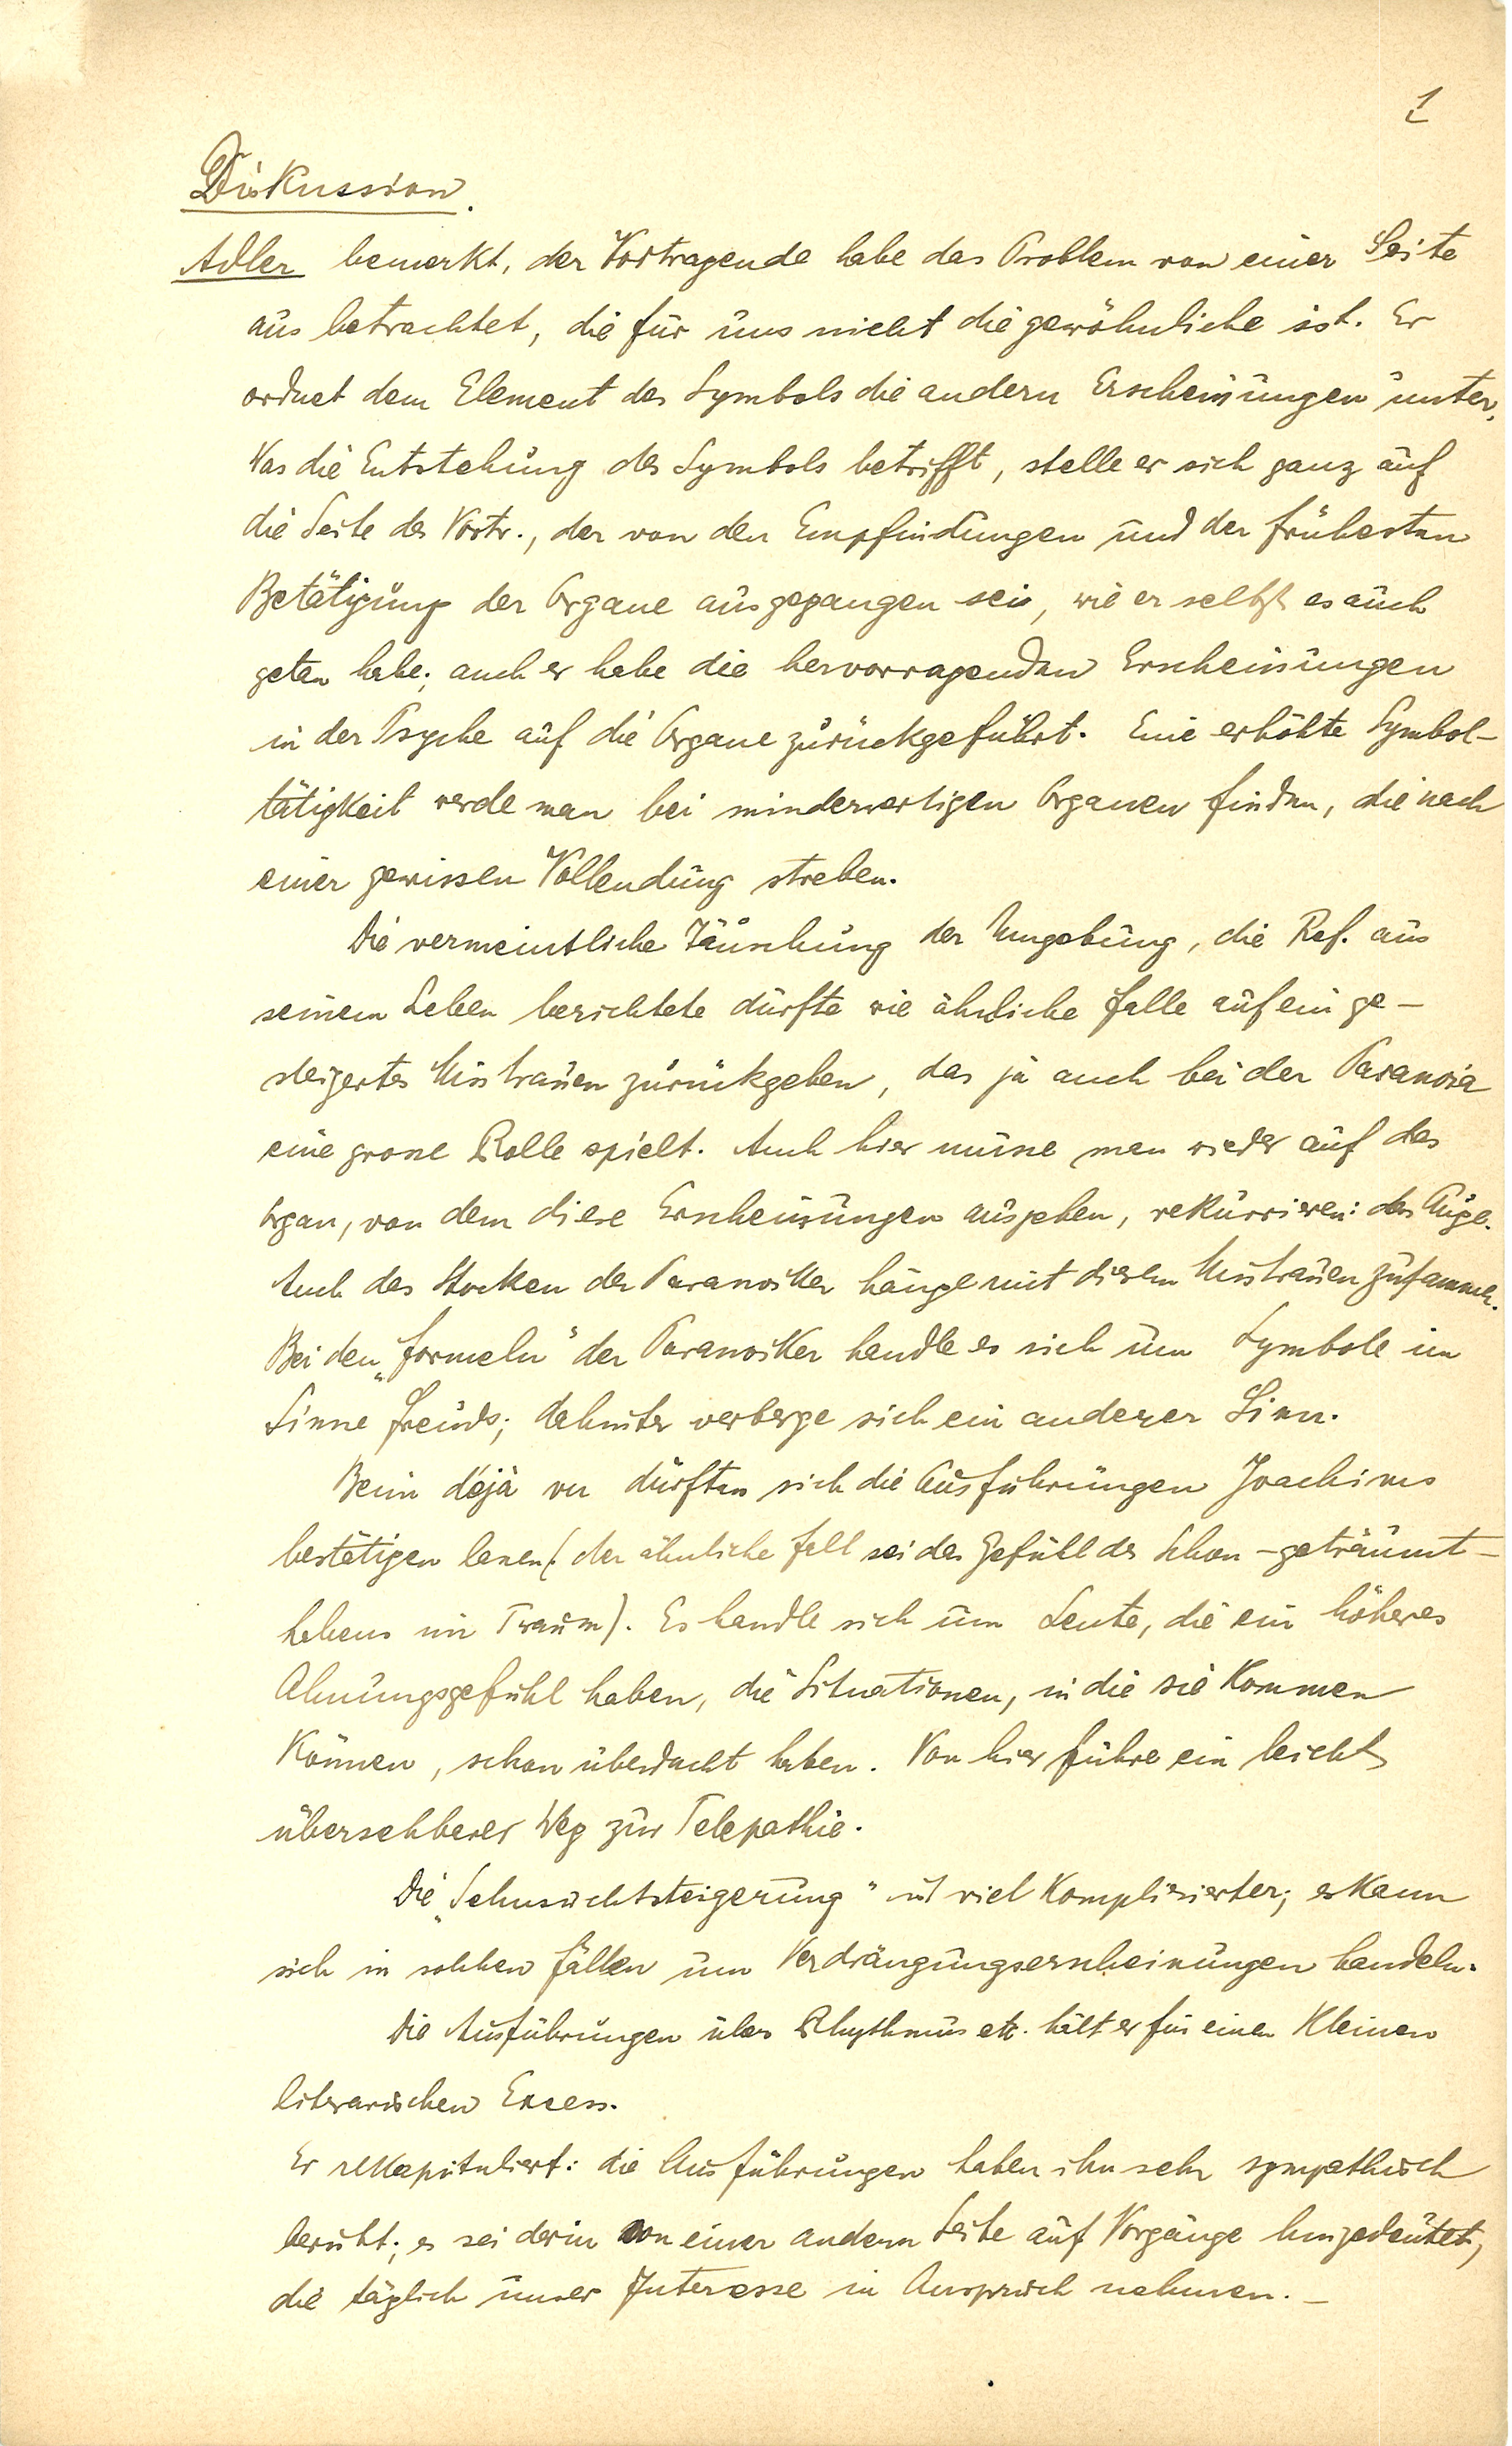 1
Diskussion.
Adler bemerkt, der Vortragende habe das Problem von einer Seite
aus betrachtet, die für uns nicht die gewöhnliche ist. Er
ordnet dem Element des Symbols die andern Erscheinungen unter.
Was die Entstehung des Symbols betrifft, stelle er sich ganz auf
die Seite des Vortr., der von den Empfindungen und der frühesten
Betätigung der Organe ausgegangen sei, wie er selbst es auch
getan habe; auch er habe die hervorragenden Erscheinungen
in der Psyche auf die Organe zurückgeführt. Eine erhöhte Symbol-
tätigkeit werde man bei minderwertigen Organen finden, die nach
einer gewissen Vollendung streben.
Die vermeintliche Täuschung der Umgebung, die Ref. aus
seinem Leben berichtete dürfte wie ähnliche Fälle auf ein ge-
steigertes Misstrauen zurückgehen, das ja auch bei der Paranoia
eine grosse Rolle spielt. Auch hier müsse man wieder auf das
Organ, von dem diese Erscheinungen ausgehen, rekurrieren: das Auge.
Auch das Stocken der Paranoiker hänge mit diesem Misstrauen zusammen.
Bei den „Formeln" der Paranoiker handle es sich um Symbole im
Sinne Freuds; dahinter verberge sich ein anderer Sinn.
Beim déjà vu dürften sich die Ausführungen Joachims
bestätigen lassen (der ähnliche Fall sei das Gefühl des Schon-geträumt-
habens im Traum). Es handle sich um Leute, die ein höheres
Ahnungsgefühl haben, die Situationen, in die sie kommen
können, schon überdacht haben. Von hier führe ein leicht
übersehbarer Weg zur Telepathie.
Die „Sehnsuchtsteigerung" ist viel komplizierter; es kann
sich in solchen Fällen um Verdrängungserscheinungen handeln.
Die Ausführungen über Rhythmus etc. hält er für einen kleinen
literarischen Excess.
Er rekapituliert: die Ausführungen haben ihn sehr sympathisch
berührt; es sei darin von einer andern Seite auf Vorgänge hingedeutet,
die täglich unser Interesse in Anspruch nehmen. –